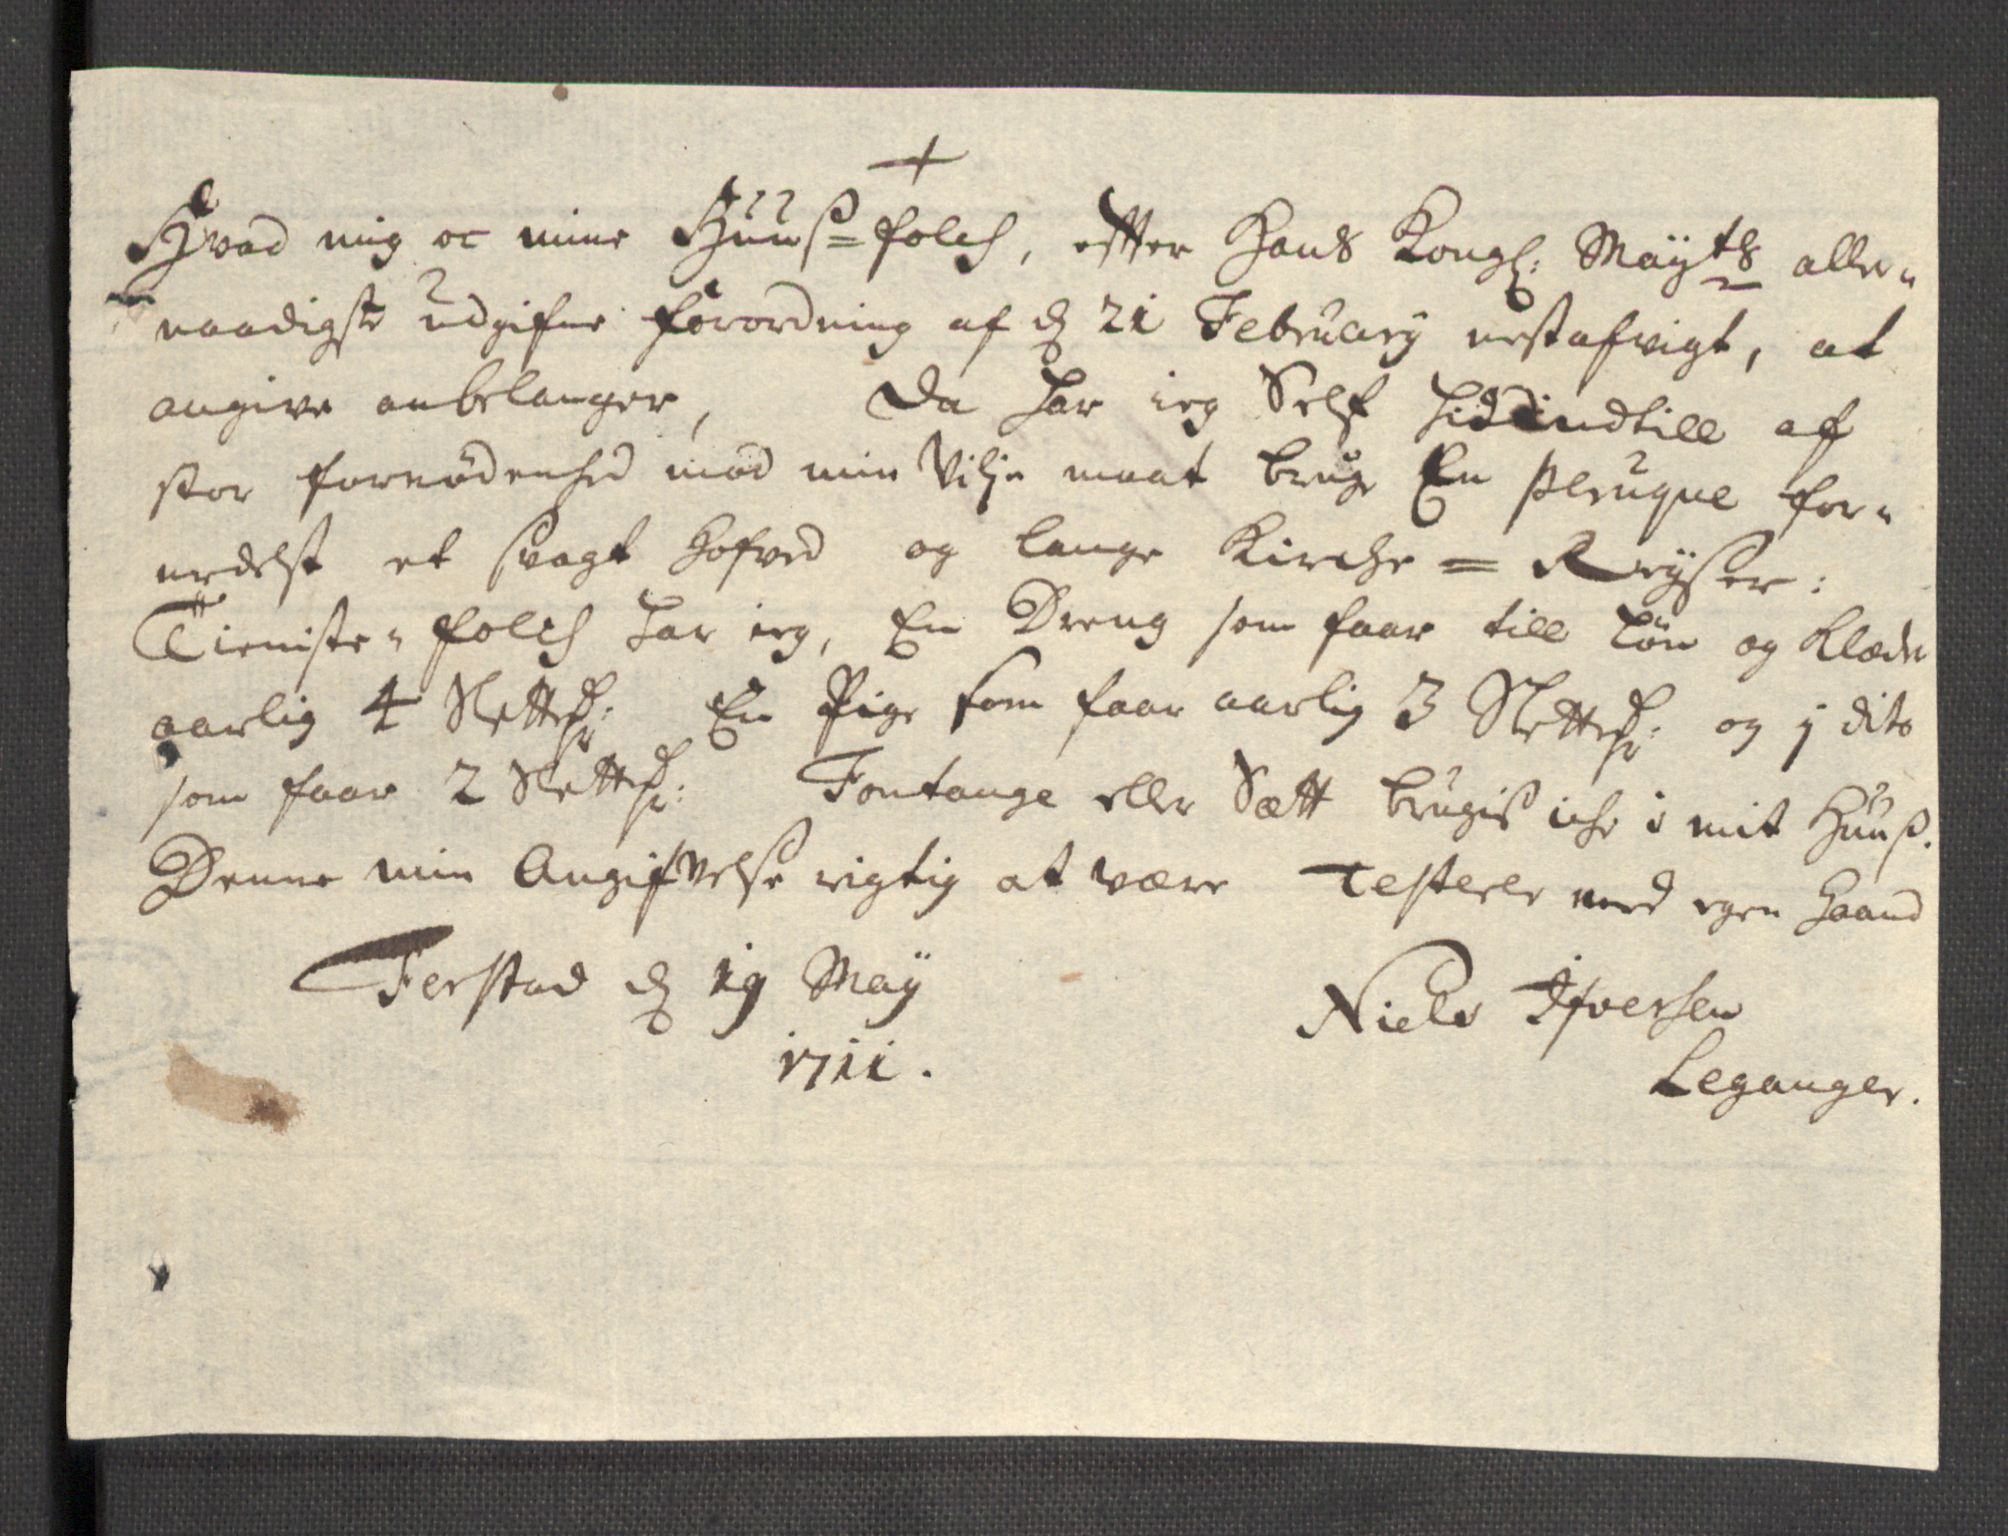 +
Hvad mig oc mine Huuß=folch, effter Hans Kongl: Mayts aller-
naadigste udgifne forordning af d 21 February nestafvigt, at
angive anbelanger, Da har ieg Self hidindtill af
stor fornödenhed mod min Vilje maat bruge En peruque for-
medelst et svagt Hofved og lange Kirche = Reyser:
Tieniste-folch har ieg, En Dreng som faar till Lön og Klæde
aarlig 4 Slette dr: En Pige som faar aarlig 3 Slette dr: og j dito
som faar 2 Slette dr: Fontange eller Sætt brugis iche i mit Huuß.
Denne min Angifvelse rigtig at være Testerer med egen Haand
Ferstad d 19 May
1711.
Niels Ifversen
Leganger.